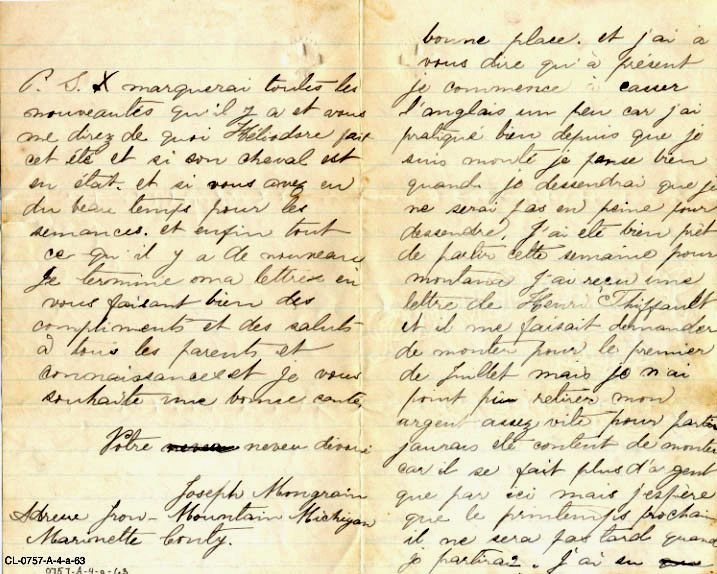 P. S. X marquerai toutes les
nouveautés qu'il y a et vous
me direz de quoi Héliodore fait
cet été et si son cheval est
en état. et si vous avez eu
du beau temps pour les
semances. et enfin tout
ce qu'il y a de nouveau
Je termine ma lettre en
vous faisant bien des
compliments et des saluts
à tous les parents et
connaissances et Je vous
souhaite une bonne santé
Votre neveu neveu dévoué
Joseph Mongrain
Adresse Iron-Mountain Michigan
Marionette Conty.
CL-0757-A-4-a-63
0757-A-4-a-63
bonne place. et j'ai à
vous dire qu'à présent
je commence à casser
l'anglais un peu car j'ai
pratiqué bien depuis que je
suis monté je pense bien
quand je dessendrai que je
ne serai pas en peine pour
dessendre J'ai été bien prêt
de partir cette semaine pour
montana J'ai reçu une
lettre de Henri Thiffault
et il me faisait demander
de monter pour le premier
de Juillet mais je n'ai
point pu retirer mon
argent assez vite pour partir
jaurais été content de monter
car il se fait plus d'a gent
que par ici mais j'espère
que le printemps prochain
il ne sera pas tard quand
je partirai. J'ai su